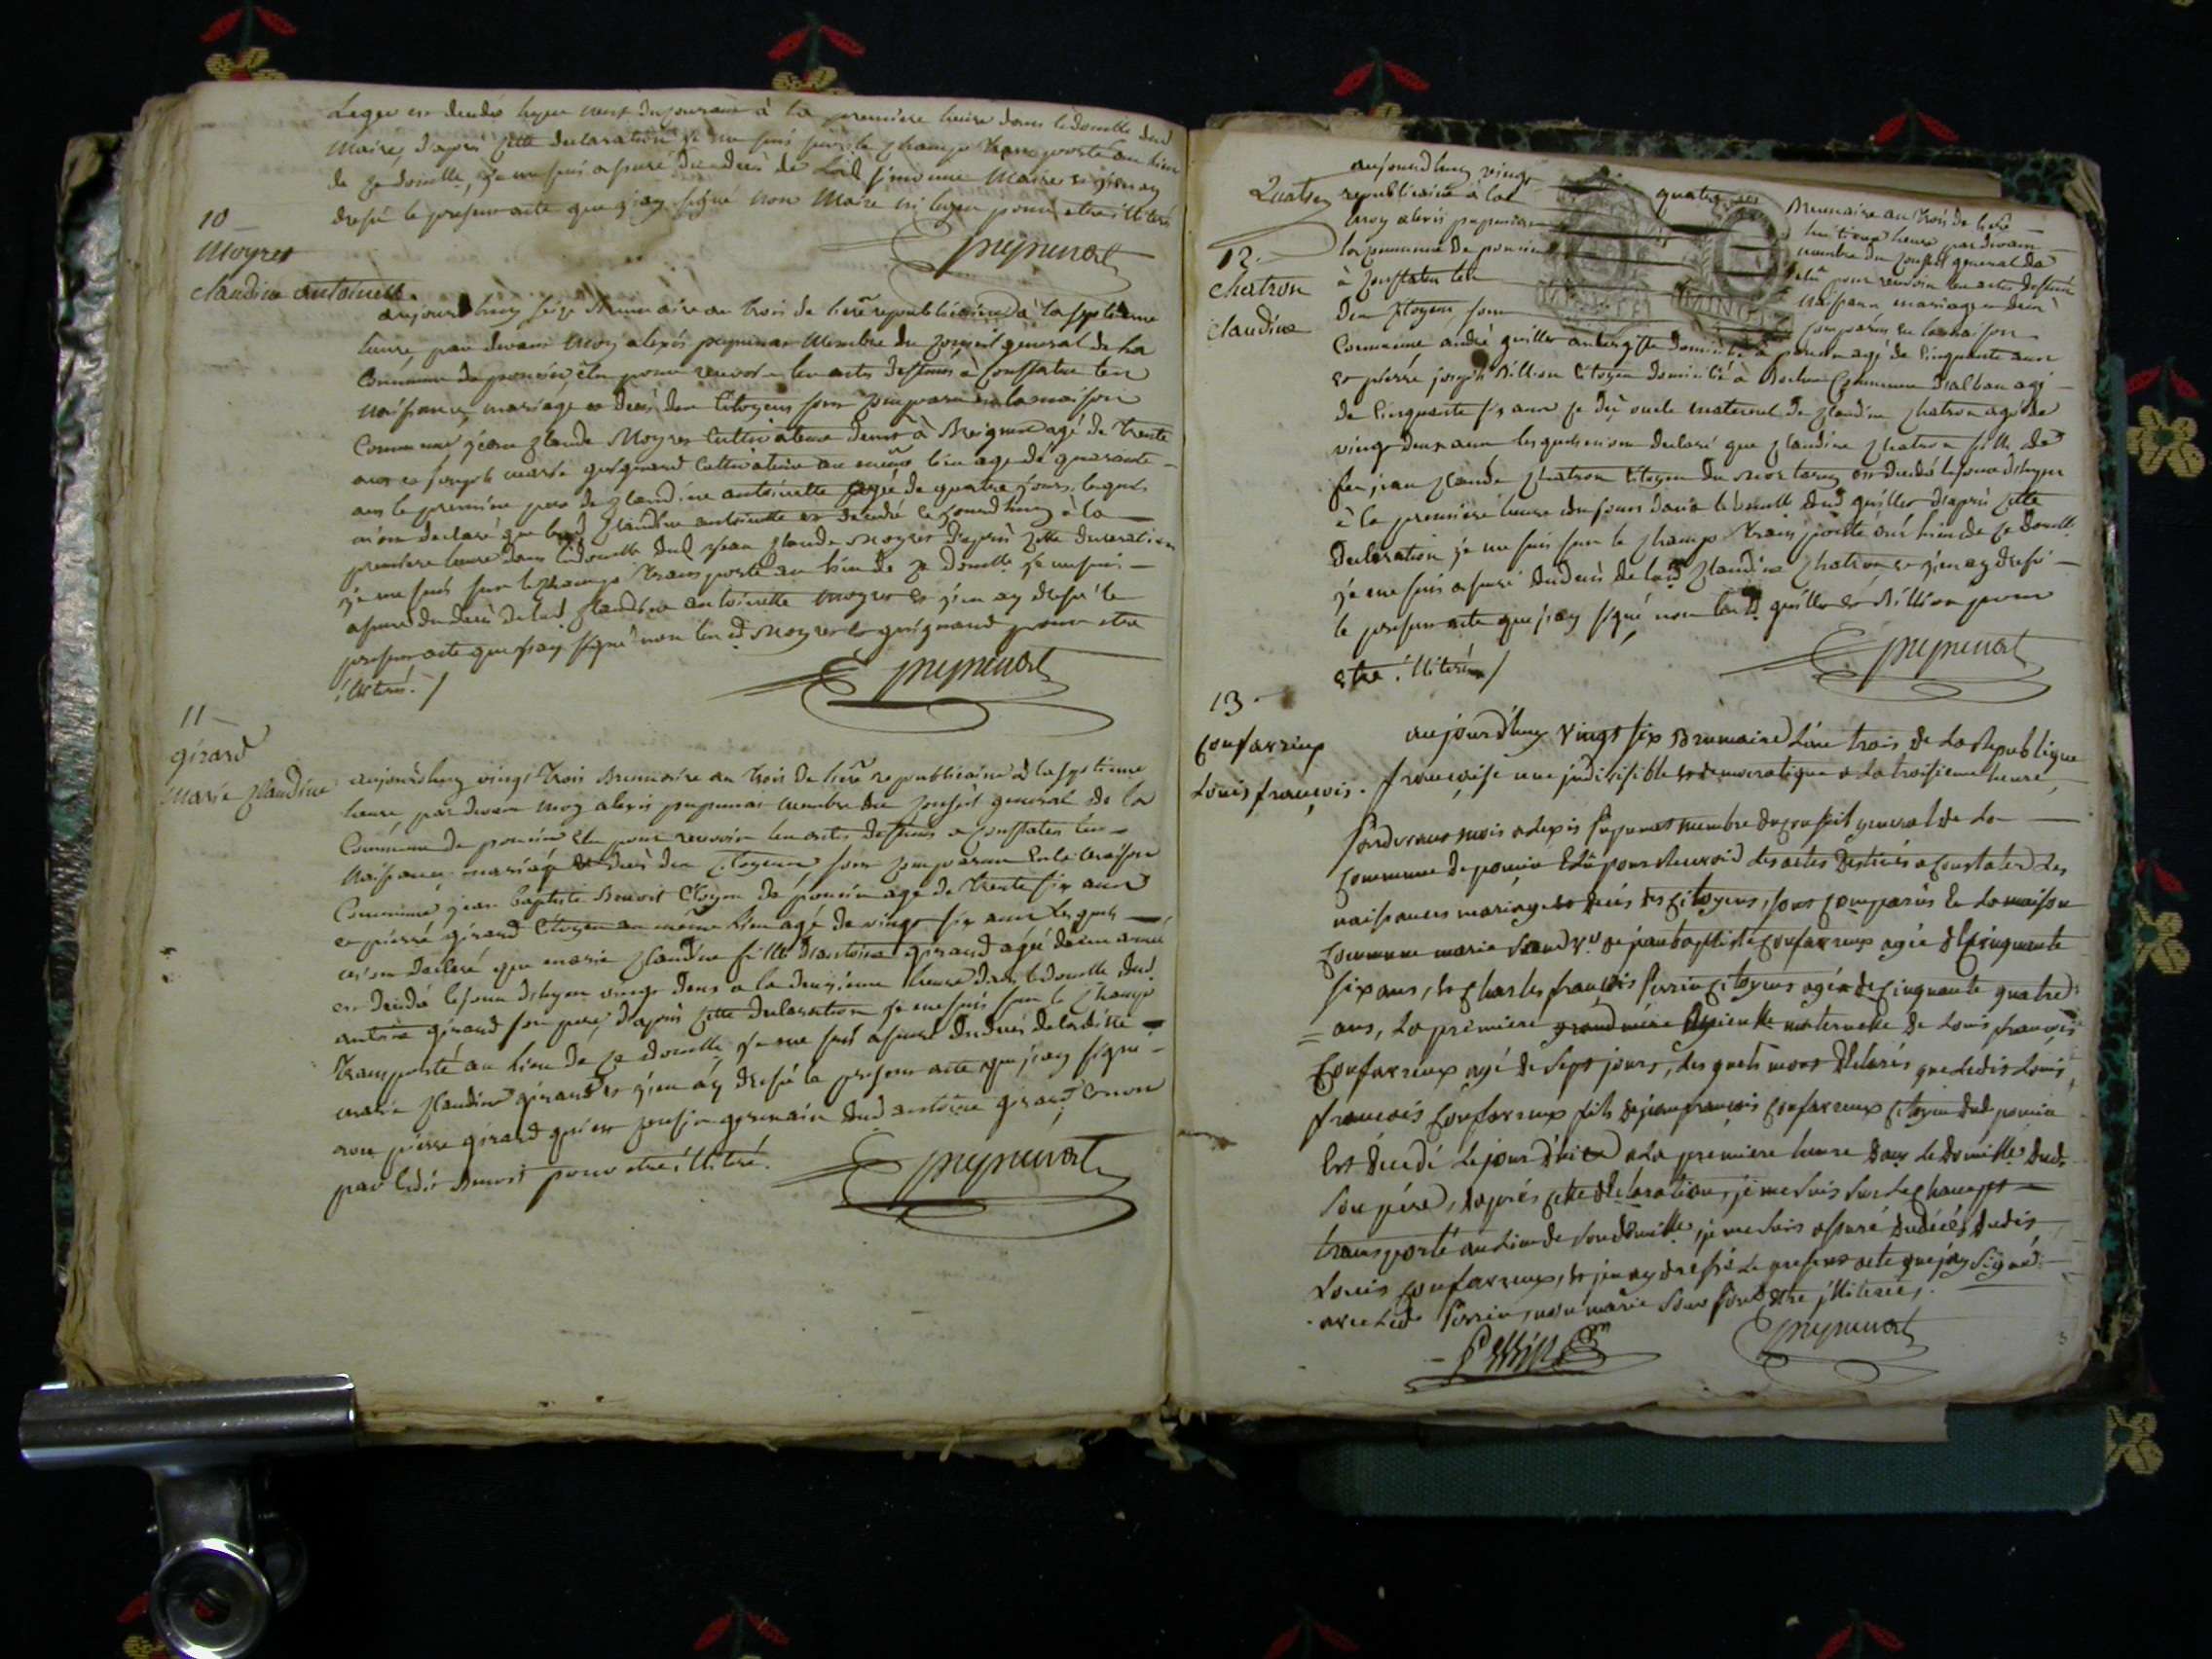 Leger est decedé hyer neuf du courant à la premiere heure dans le domlle dud
Maire, d'apres cette declaration je me suis sur le champ transporté au lieu
de ce domille, je me suis assuré du deces de lad simonne Maire et j'en ay
dressé le present acte que j'ay signé non Maire ni leger pour etre illiteré
pupunat
10
Moyret
claudine antoinette
aujourdhuy seize Brumaire an trois de l'ere republicaine à la septieme
heure, par devant moy alexis pupunat Membre du conseil general de la
Commune de poncin, elu pour recevoir les actes destinés à constater les
naissances, mariages et deces des Citoyens sont comparu en la maison
Commune jean claude Moyret Cultivateur demt à Breignes agé de trente
ans et joseph marie guignard Cultivateur au même lieu agé de quarante
ans le premier pere de claudine antoinette agée de quatre jours, lesquels
m'ont declaré que lad claudine antoinette est decedé ce jourdhuy à la
premiere heure dans le domlle dud jean claude Moyret d'après cette declaration
je me suis sur le champ transporté au lieu de ce domlle je me suis
assuré du deces de lad claudine antoinette moyret et j'en ay dressé le
present acte que j'ay signé non lesd Moyret et guignard pour etre
illiterés. /
pupunat
11
girard
Marie claudine
aujourdhuy vingt trois Brumaire an trois de l'ere republicaine à la septieme
heure, par devant moy alexis pupunat membre du conseil general de la
Commune de poncin, elu pour recevoir les actes destinés a constater les
naissances, mariages et deces des citoyens, sont comparu en la maison
Commune jean baptiste Benoit Citoyen de poncin agé de trente six ans
et pierre girard Citoyen au même lieu agé de vingt six ans lesquels
m'ont declaré que marie claudine fille d'antoine girard agée d'un année
est decedé le jour dhyer vingt deux a la deuxieme heure dans le domlle dud
antoine girard son pere, d'après cette declaration je me suis sur le champ
transporté au lieu de ce domlle, je me suis assuré du deces de laditte
marie claudine girard et j'en ay dressé le present acte que j'ay signé
avec pierre girard qui est cousin germain dud antoine girard et non
par ledit Benoit pour etre illiteré.
pupunat
Quatre
12.
chatron
claudine
aujourdhuy vingt quatre Brumaire an trois de l'ere
republicaine à la huitieme heure par devant
moy alexis pupunat membre du conseil general de
la commune de poncin elu pour recevoir les actes destinés
à constater les naissances mariages et deces
des citoyens, sont comparus en la maison
Commune andré guillet aubergiste domicilié à poncin agé de cinquante ans
et pierre joseph Billion Citoyen domicilié à Commune d'alban agé
de cinquante six ans ce d. oncle maternel de claudine chatron agée de
vingt deux ans lesquels m'ont declaré que claudine chatron fille de
feu jean claude chatron citoyen du est decedé le jour dhyer
à la premiere heure du jour dans le domille dud guillet d'après cette
Declaration je me suis sur le champ transporté au lieu de ce domlle
je me suis assuré du deces de lad claudine chatron et j'en ay dressé
le present acte que j'ay signé non lesd guillet et Billion pour
etre illiterés /
pupunat
13
Confavreux
Louis françois.
aujourdhuy vingt six Brumaire L'an trois de La Republique
françoise une indivisible et democratique a La troisieme heure,
Pardevant mois alexis Pupunat membre du conseil general de La
Commune de poncin Elu pour Recevoir les actes Destinés a Constater Les
naissances mariages et deces des citoyens, sont comparus En La maison
Commune marie ve de jean baptiste Confavreux agée de Cinquante
six ans, et Charles françois Perrin citoyens agé de cinquante quatre
ans, La premiere grand mère maternelle de Louis françois
Confavreux agé de Sept jours, Les quels mont declarés que Ledit Louis
françois Confavreux fils de jean françois Confavreux citoyen dud. poncin
Est décédé Le jour d'hier a La premiere heure dans Le Domille dud.
Son père, d'aprés cette déclaration, je me Suis Sur Le champs
transporté au Lieu de Son domille, je me Suis assuré du décés dudit
Louis Confavreux, et jen ay dréssé Le present acte que jay Signé
avec Led. Perrin, non marie pour être illiterée.
Perrin
pupunat